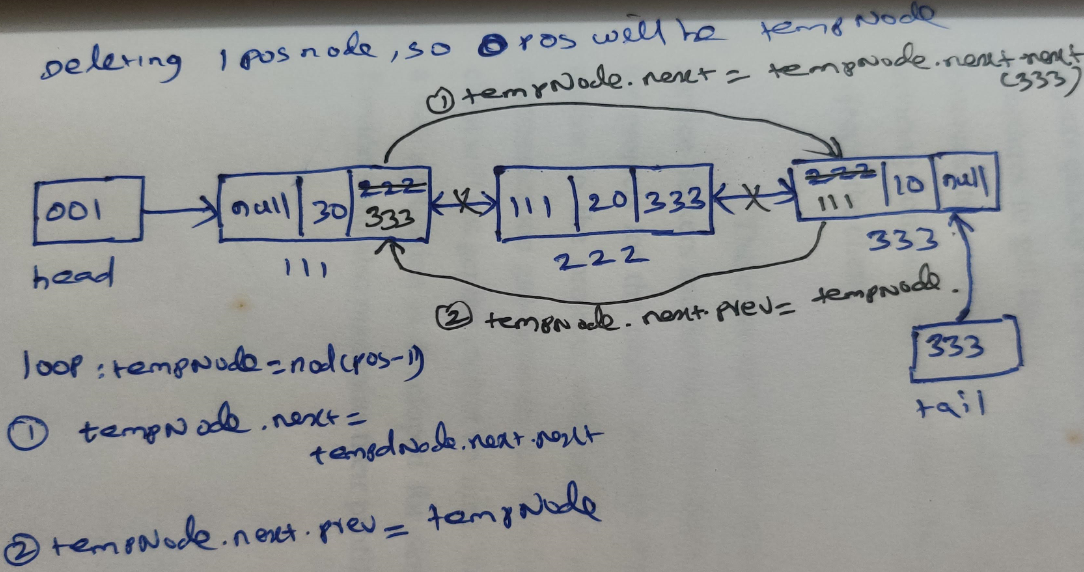 Deleting 1 pos node, so 0 pos will be tempNode
① tempNode.next = tempNode.next.next
(333)
001
null 30 222 333
111 20 333
222 111 10 null
head
111
222
333
② tempNode.next.prev = tempNode.
333
tail
loop : tempNode = nod(pos-1)
① tempNode.next =
tempdNode.next.next
② tempNode.next.prev = tempNode